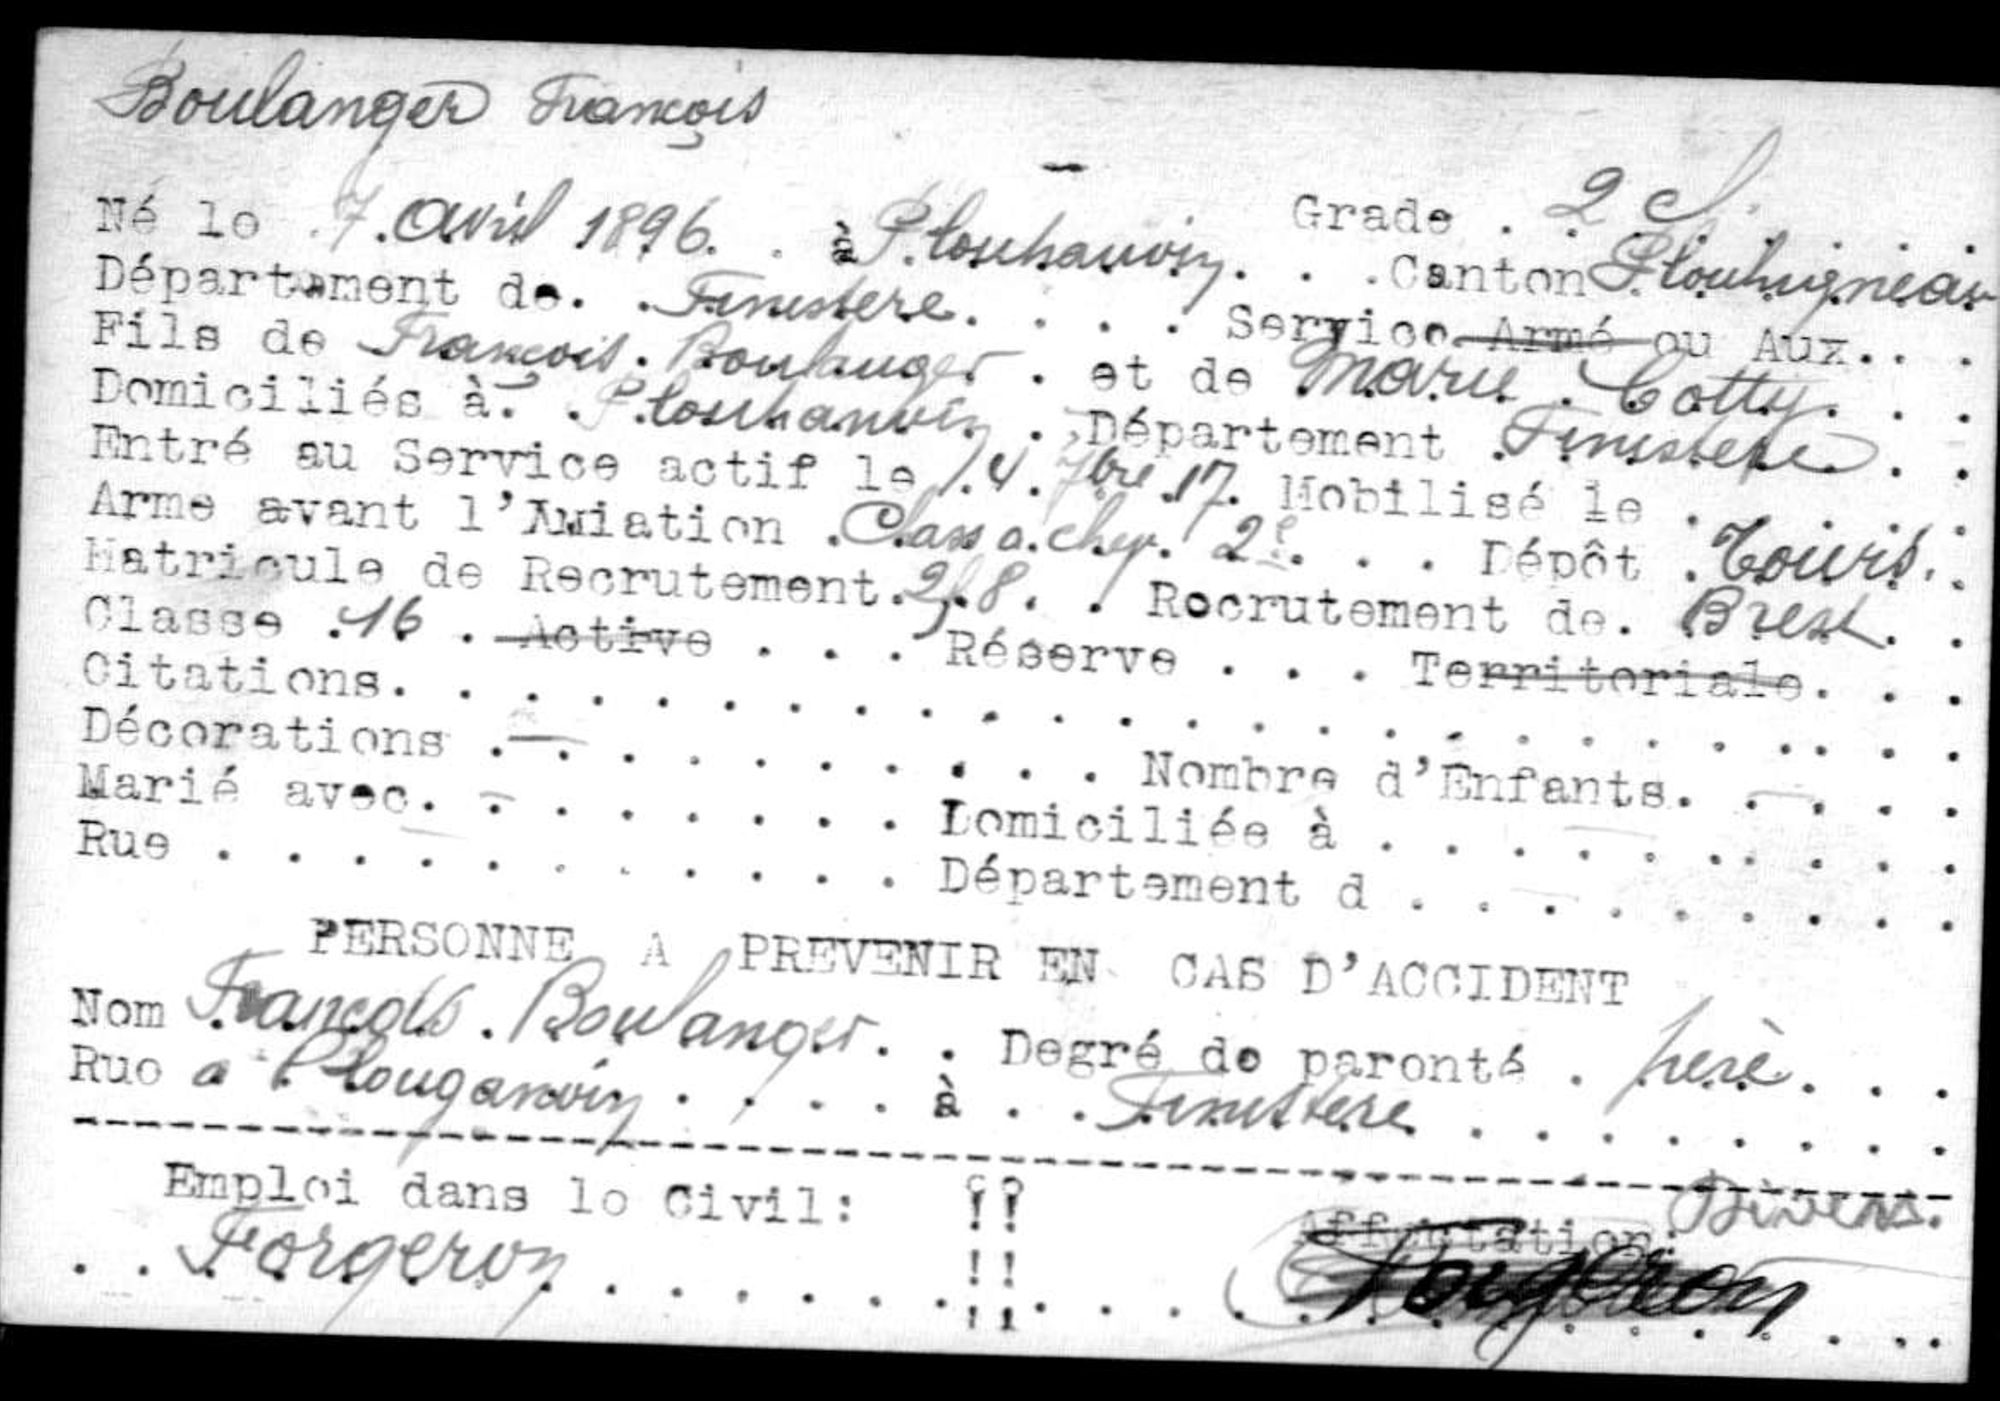 Boulanger François
Grade . 2 cl.
Né le 7 Avril 1896 . à Plouhauvin . . Canton Plouhigneau
Département de . Finistere . . . . Service Armé ou Aux. . .
Fils de François Boulanger . et de Marie Cotty . . .
Domiciliés à . Plouhanvin . Département Finistere . .
Entré au Service actif le 14 7bre 17. Mobilisé le . . . . .
Arme avant l'Aviation . Chass a. chev. 2e . . . Dépôt . Tours . .
Matricule de Recrutement . . . Recrutement de . Brest . .
Classe . 16 . Active . . . Réserve . . . Territoriale . . .
Citations. . . . . . . . . . . . . . . . . . . . . . . .
Décorations . — . . . . . . . . . Nombre d'Enfants. . — . . .
Marié avec. — . . . . . . . Domiciliée à . . . . . . . . .
Rue . . . . . . . . . . . Département d . . . . . . . . .
PERSONNE A PREVENIR EN CAS D'ACCIDENT
Nom François Boulanger . . Degré de parenté . père . . .
Rue a Plouganvin . . . . à . . Finistere . . . . . . . .
Emploi dans le Civil: !! Affectation: Divers.
. . Forgeron . . . . . . !! . . . . Forgeron . . .
!!